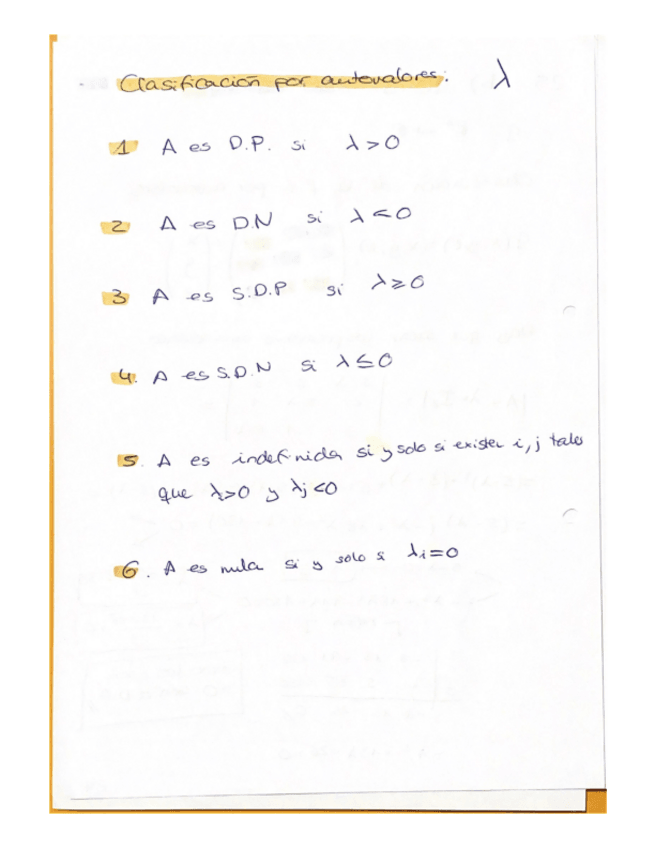 Clasificación por autovalores: λ
1 A es D.P. si λ > 0
2 A es D.N si λ < 0
3 A es S.D.P si λ ≥ 0
4. A es S.D.N si λ ≤ 0
5. A es indefinida si y solo si existen i, j tales
que λi>0 y λj<0
6. A es nula si y solo s λi=0